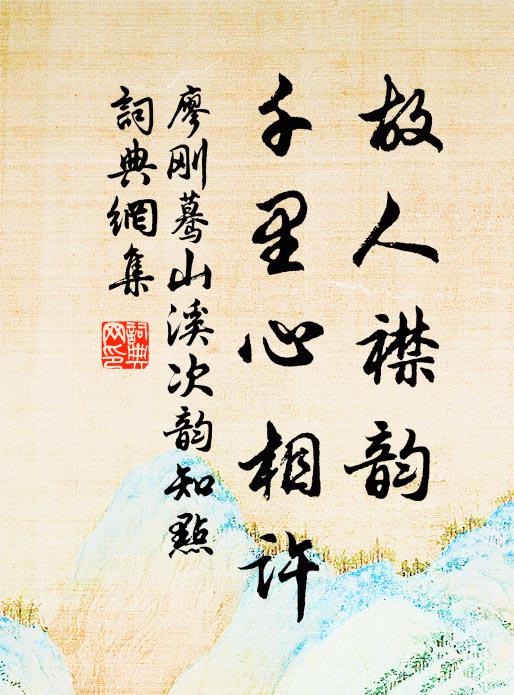 故人襟韵
千里心相许
廖刚蓦山溪次韵知點
詞典網集
詞典網印